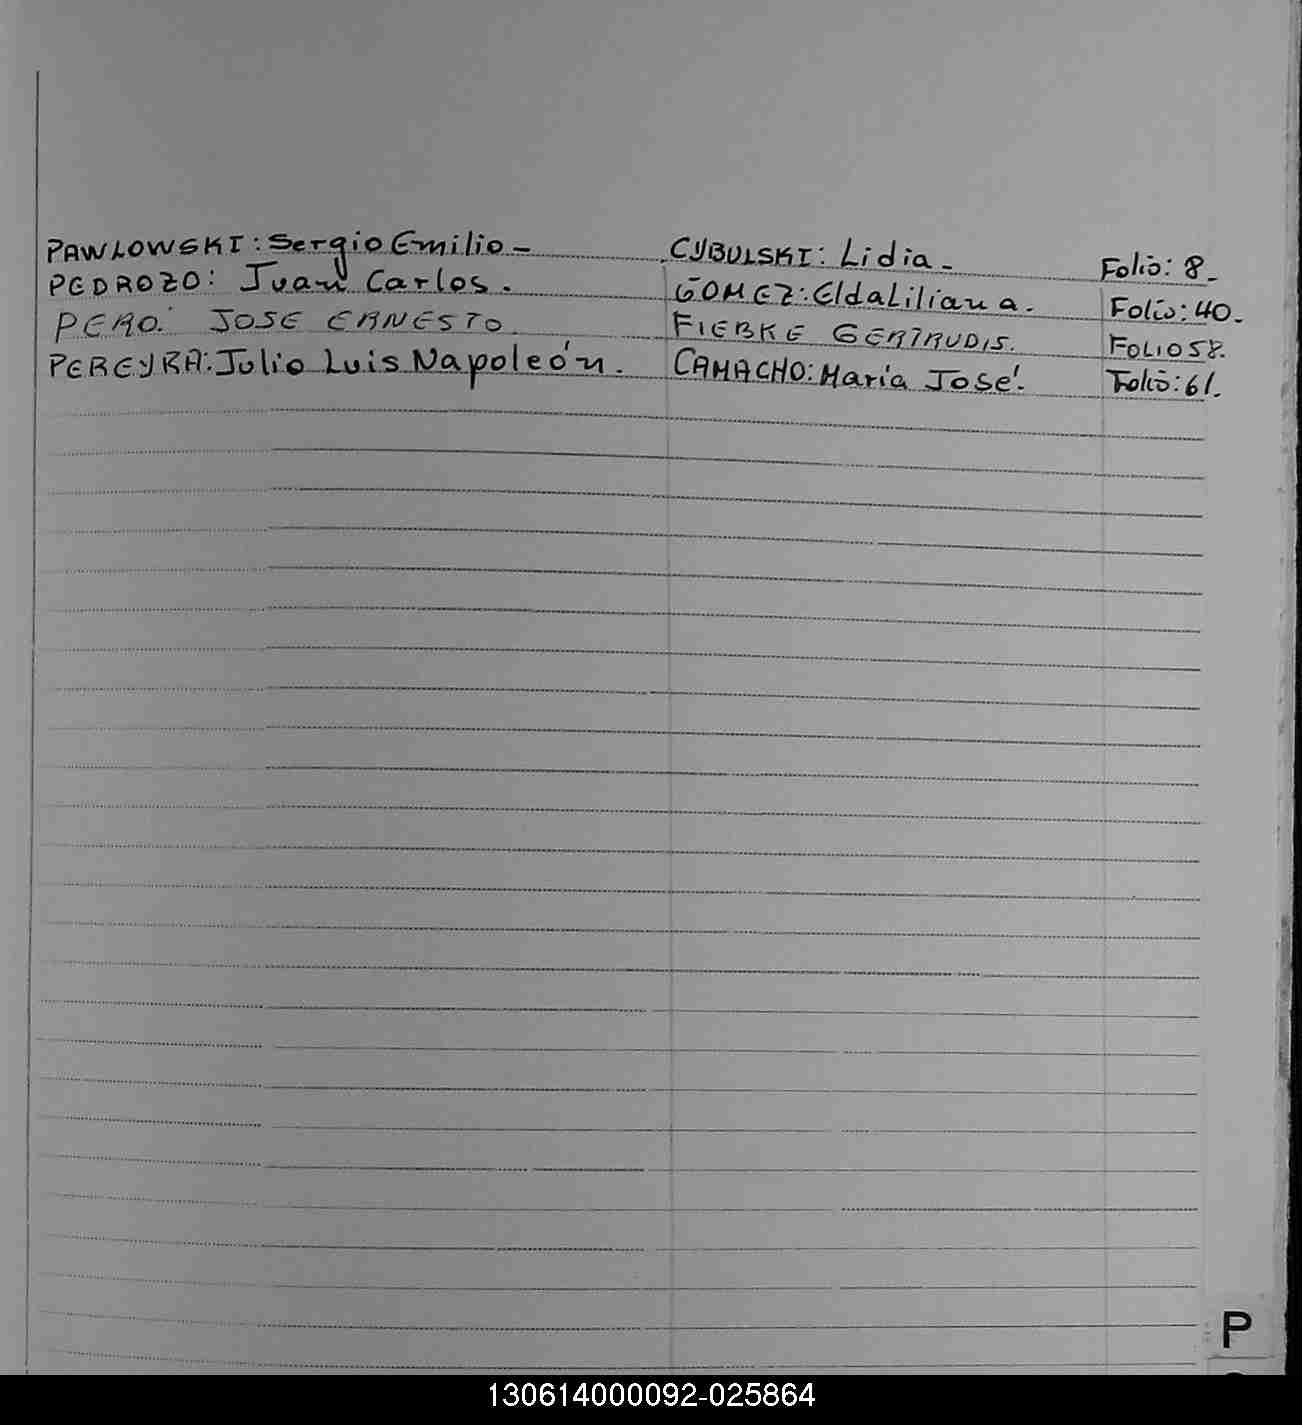 PAWLOWSKI: Sergio Emilio - CYBULSKI: Lidia - Folio: 8 -
PEDROZO: Juan Carlos. GOMEZ: Elda Liliana. Folio: 40 -
PERO: JOSE ERNESTO. FIEBKE GERTRUDIS. FOLIO 58.
PEREYRA: Julio Luis Napoleón. CAMACHO: María José. Folio: 61.
P
130614000092-025864